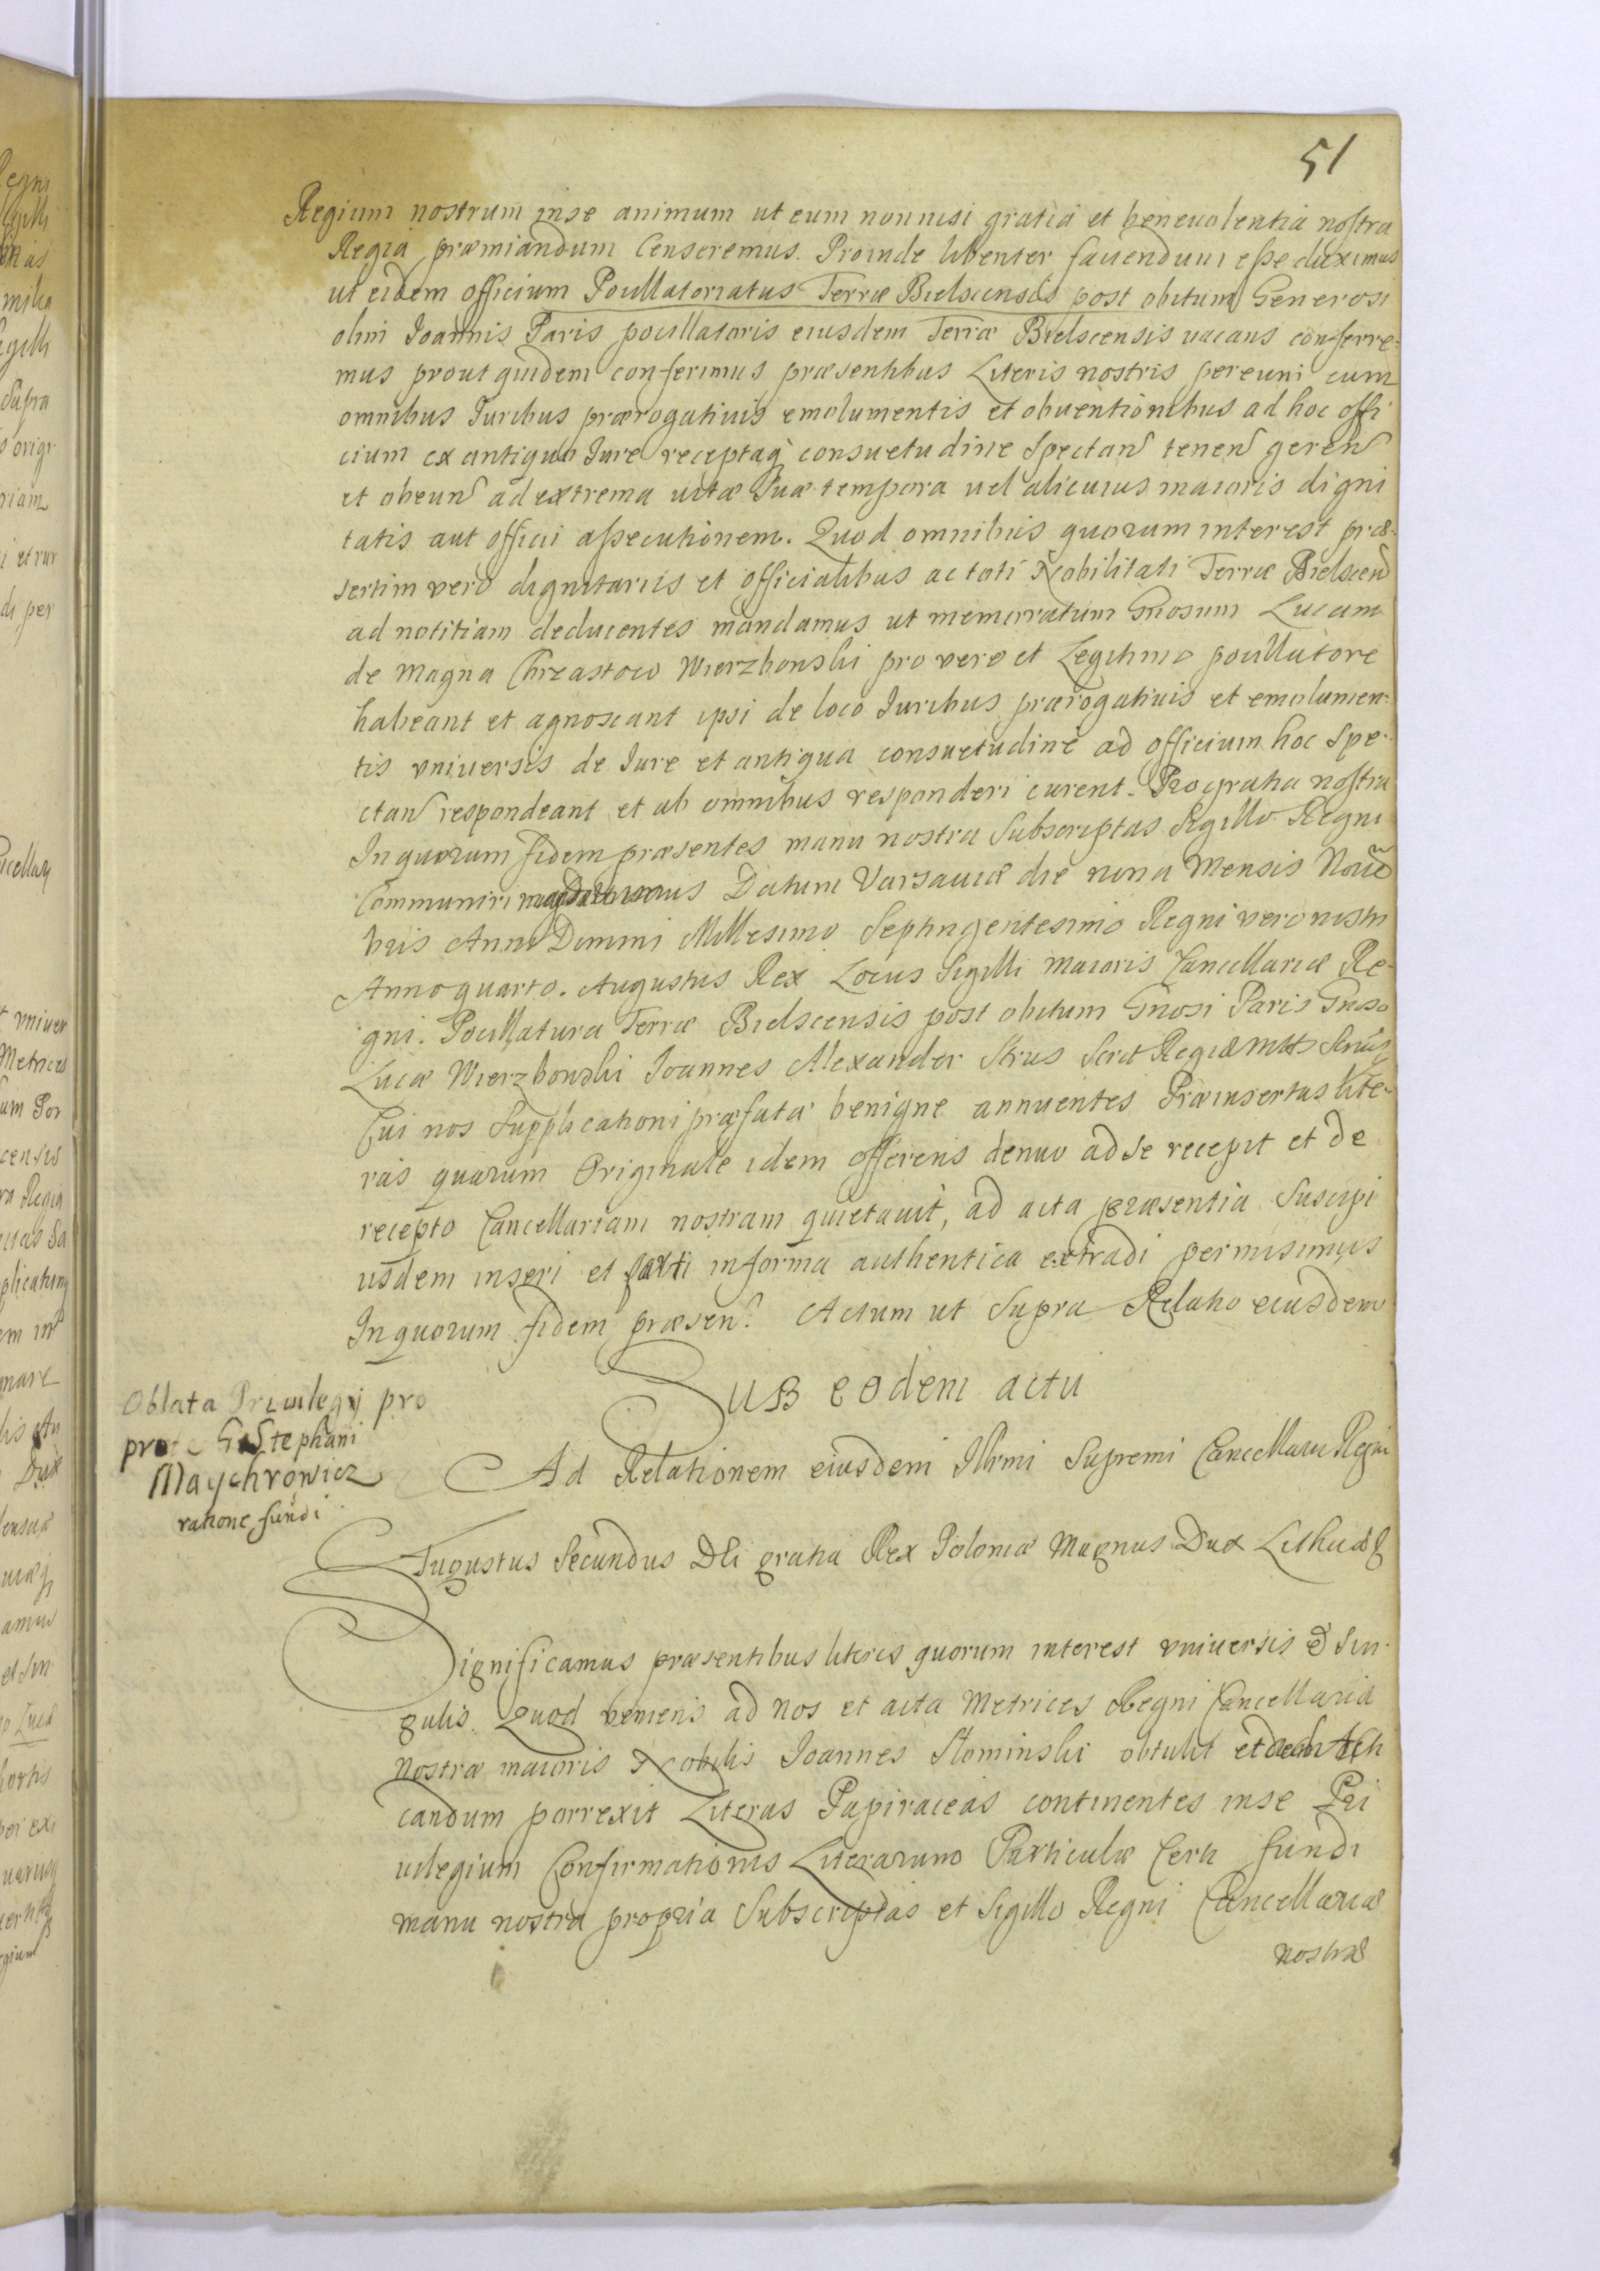 51
Regium nostrum inse animum ut eum nonnisi gratia et beneuolentia nostra
Regia præmiandum Censeremus. Proinde libenter fauendum esse duximus
ut eidem officium Pocillatoriatus Terræ Bielscensis post obitum Generosi
olim Ioannis Paris pocillatoris eiusdem Terræ Bielscensis uacans conferre-
mus prout quidem conferimus præsentibus Literis nostris per eum cum
omnibus Iuribus prærogatiuis emolumentis et obuentionibus ad hoc offi
cium ex antiquo Iure receptaq consuetudine Spectan tenen geren
et obeun ad extrema uitæ suæ tempora uel alicuius maioris digni
tatis aut officii assecutionem. Quod omnibus quorum interest præ-
sertim vero dignitariis et officialibus ac toti Nobilitati Terræ Bielscen
ad notitiam deducentes mandamus ut memorratum Gnosum Lucam
de Magna Chrzastow Wierzbowski pro vero et Legitimo pocillatore
habeant et agnoscant ipsi de loco Iuribus prærogatiuis et emolumen-
tis vniuersis de Iure et antiqua consuetudine ad officium hoc Spe-
ctan respondeant et ab omnibus responderi curent. Pro gratia nostra
In quorum fidem præsentes manu nostra Subscriptas Sigillo Regni
Communiri mandauimus Datum Varsauiæ die nona Mensis Noue
bris Anno Domini Millesimo Septingentesimo Regni vero nostri
Anno quarto. Augustus Rex Locus Sigilli maioris Cancellariæ Re-
gni. Pocillatura Terræ Bielscensis post obitum Gnosi Paris Gnoso
Lucæ Wierzbowski Ioannes Alexander Strus Regiæ Mttis
Cui nos Supplicationi præfatæ benigne annuentes Præinsertas lite-
ras quarum Originale idem offerens denuo ad se recepit et de
recepto Cancellariam nostram quietauit, ad acta præsentia Suscipi
iisdem inseri et parti in forma authentica extradi permisimus
In quorum fidem præsen. Actum ut Supra Relatio eiusdem
Sub eodem actu
Oblata Priuilegij pro
G. Stephani
Maychrowicz
ratione fundi
Ad Relationem eiusdem Illrmi Supremi Cancellarii Regni
Augustus Secundus Dei gratia Rex Poloniæ Magnus Dux Lithuæ
Significamus præsentibus literis quorum interest vniuersis et sin-
gulis. Quod veniens ad nos et acta Metrices Regni Cancellariæ
Nostræ maioris Nobilis Ioannes Slominski obtulit et ad authenti
candum porrexit Literas Papiraceas continentes inse Pri
uilegium Confirmationis Literarum Particulæ Certi fundi
manu nostra propria Subscriptas et Sigillo Regni Cancellariæ
nostræ